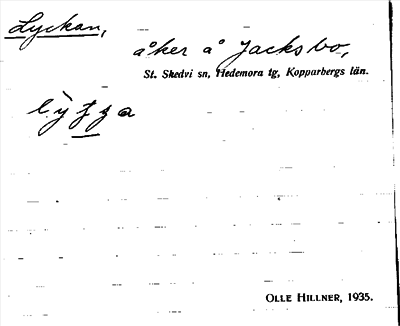 Lyckan,
åker å Jacksbo,
St. Skedvi sn, Hedemora tg, Kopparbergs län.
OLLE HILLNER, 1935.